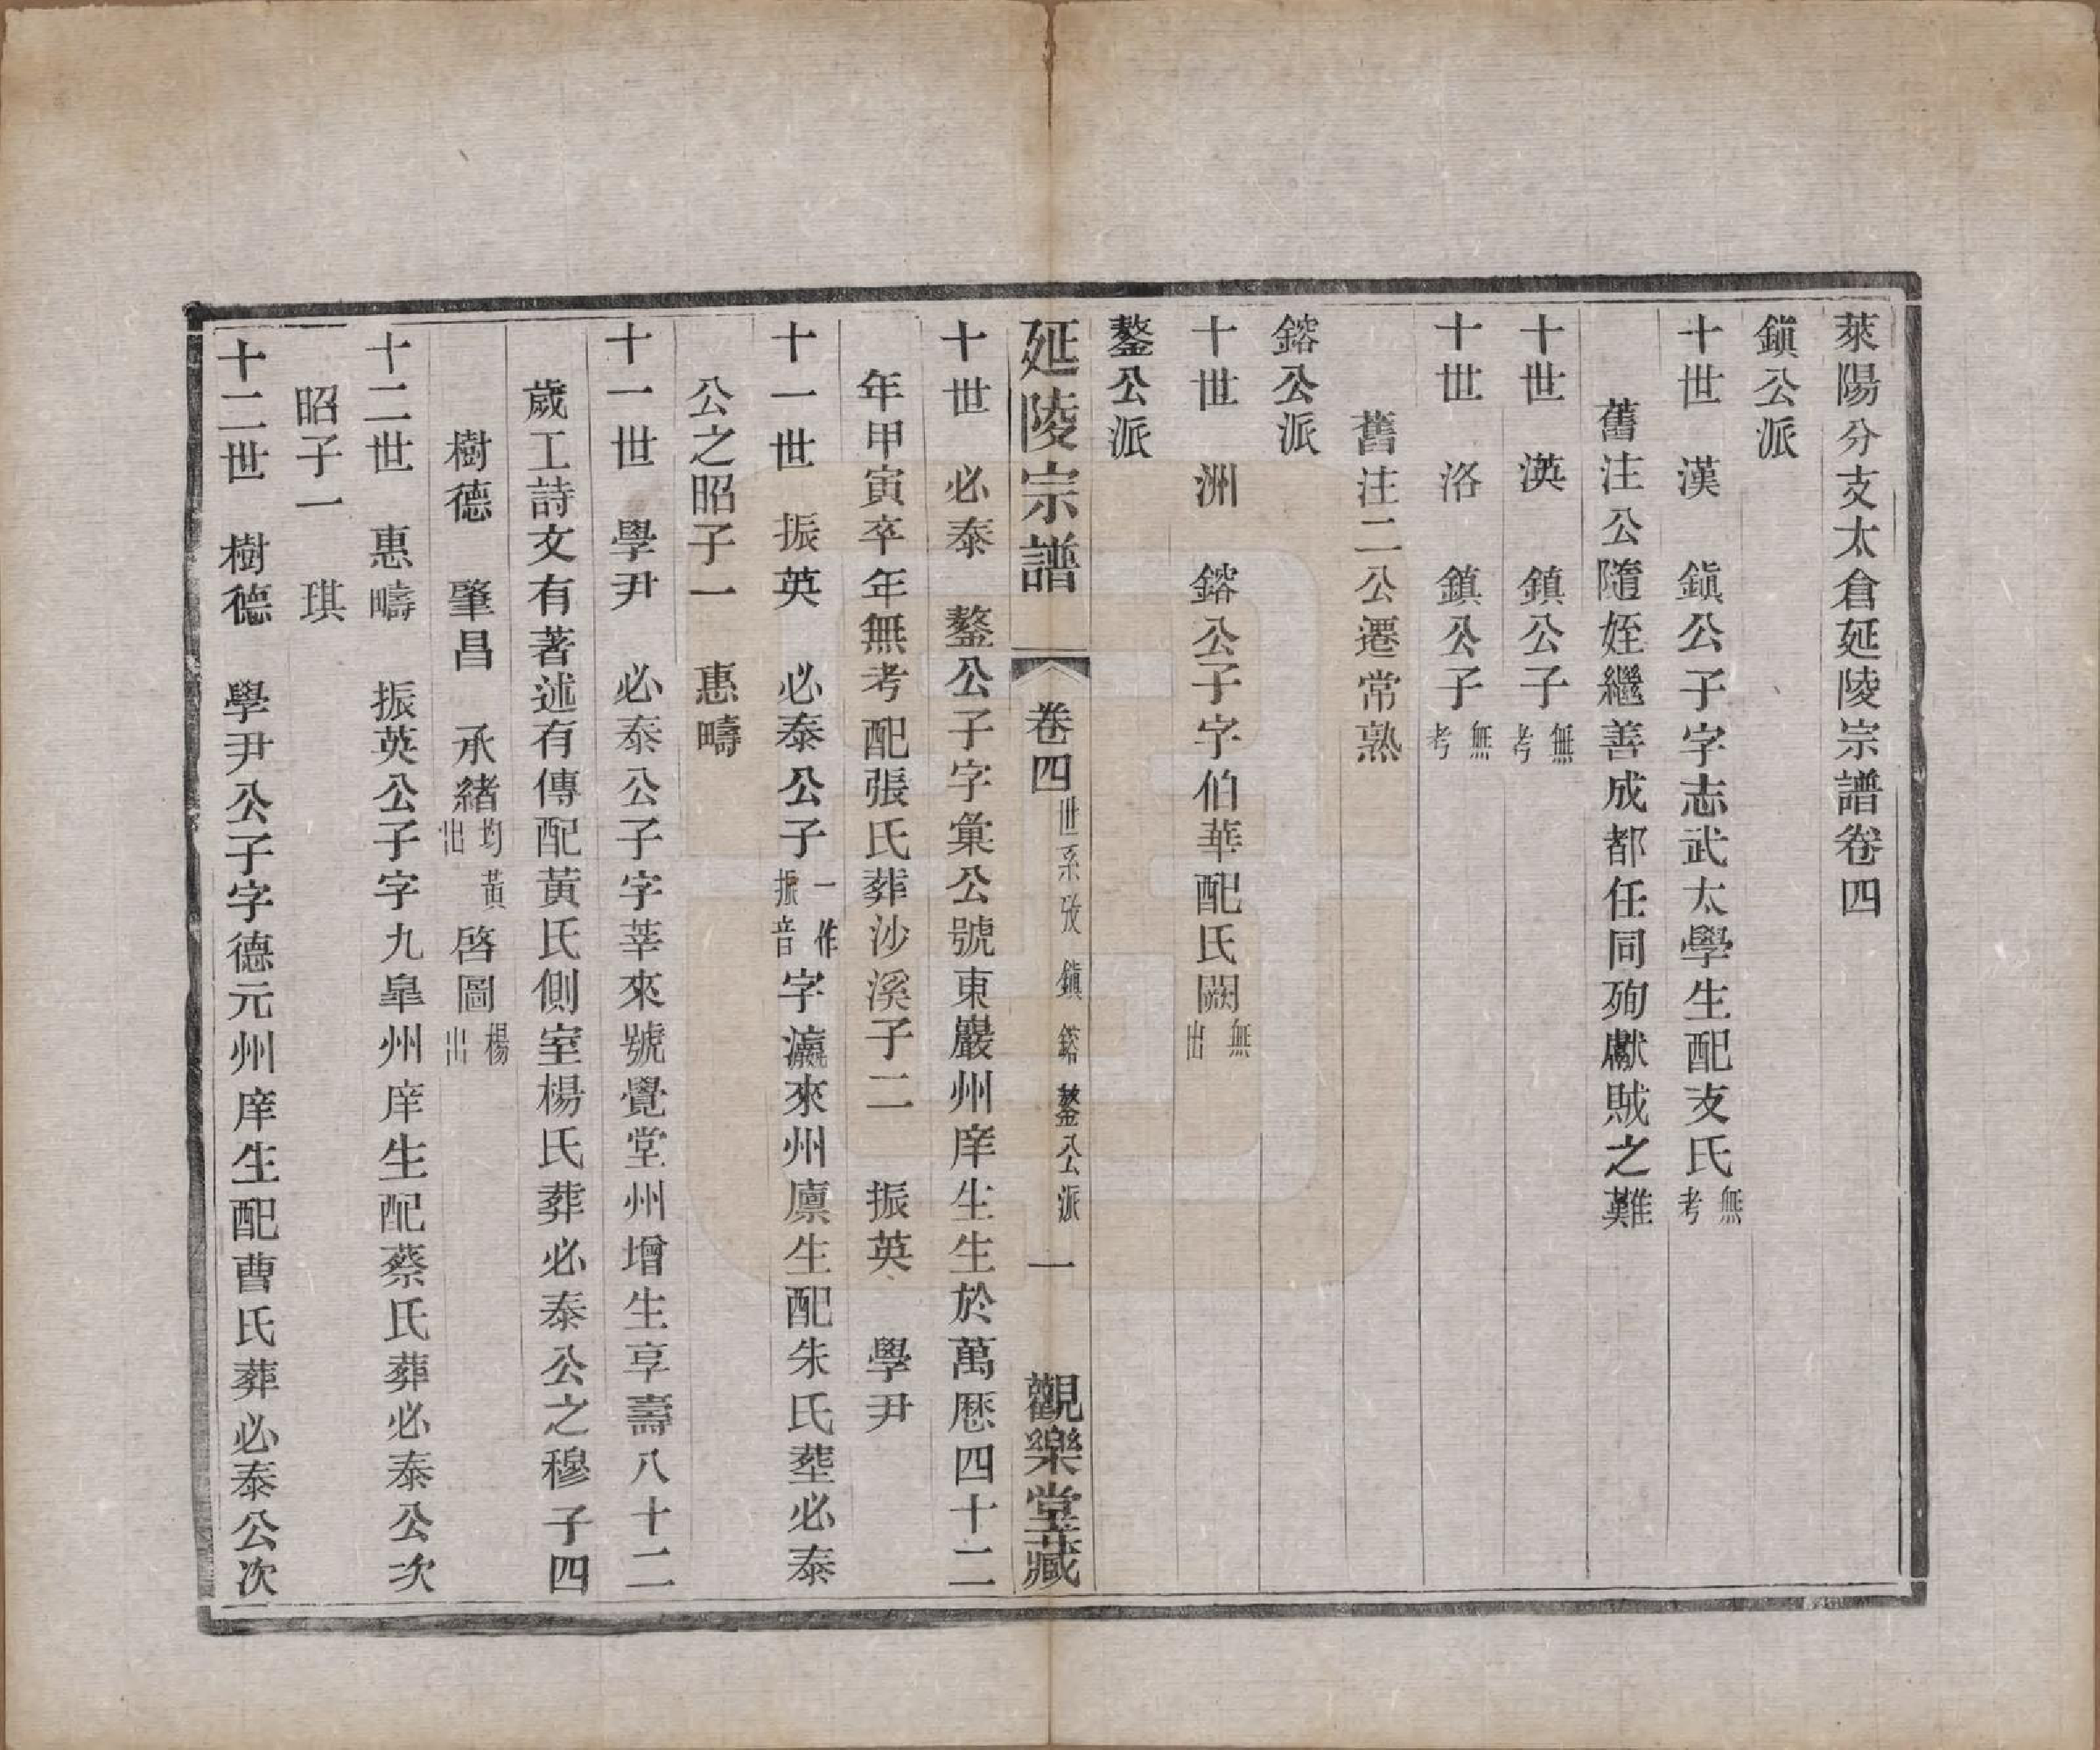 萊陽分支太倉延陵宗譜卷四
鎭公派
十世 漢 鎭公子字志武太學生配支氏無考
舊注公隨姪繼善成都任同殉獻賊之難
十世 渶 鎮公子無考
十世 洛 鎮公子無考
舊注二公遷常熟
鎔公派
十世 洲 鎔公子字伯華配氏闕無出
鏊公派
延陵宗譜 卷四 世系攷 鎮 鎔 鏊公派 一 觀樂堂藏
十世 必泰 鏊公子字彙公號東巖州庠生生於萬歷四十二
年甲寅卒年無考配張氏葬沙溪子二 振英 學尹
十一世 振英 必泰公子一作振音字瀛來州廪生配朱氏塟必泰
公之昭子一 惠疇
十一世 學尹 必泰公子字莘來號覺堂州增生享壽八十二
歲工詩文有著述有傳配黃氏側室楊氏葬必泰公之穆子四
樹德 肇昌 承緒均黃出 啓圖楊出
十二世 惠疇 振英公子字九臯州庠生配蔡氏葬必泰公次
昭子一 琪
十二世 樹德 學尹公子字德元州庠生配曹氏葬必泰公次